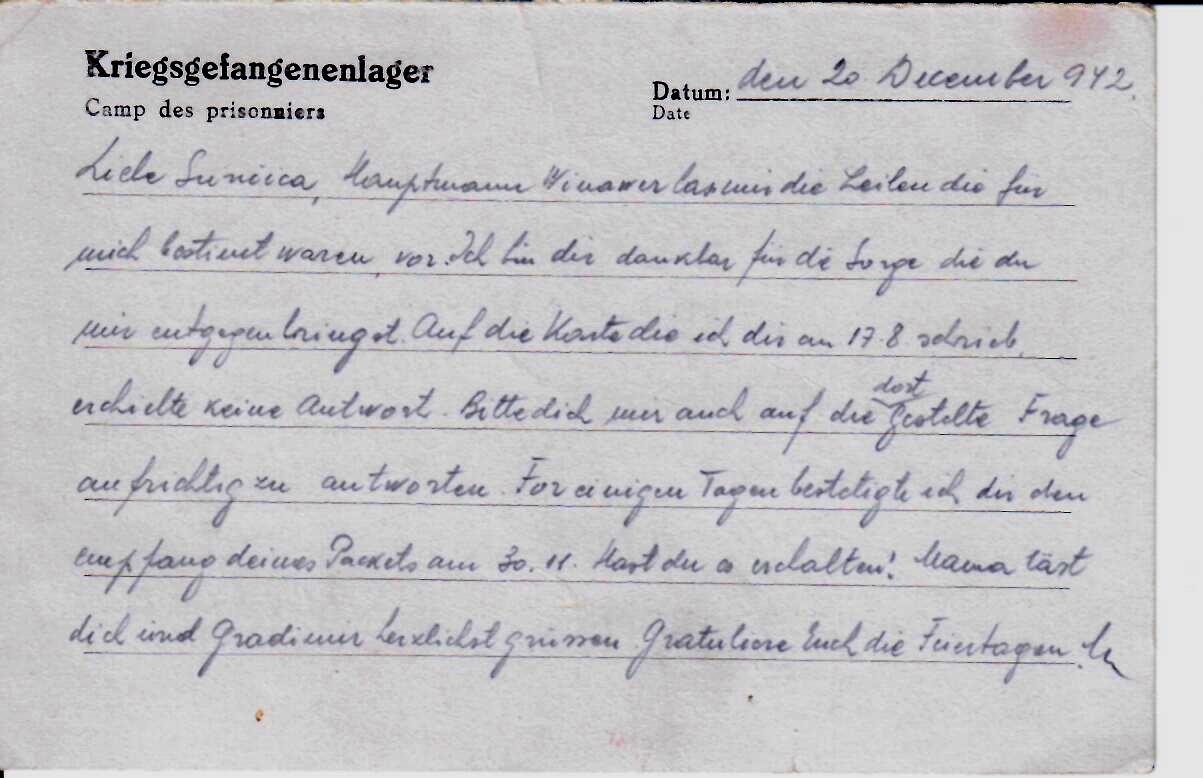 Kriegsgefangenenlager
Camp des prisonniers
Datum: den 20 December 942.
Date
Liebe Sunčica, Hauptmann Winawer las mir die Zeilen die für
mich bestimt waren, vor. Ich bin dir dankbar für die Sorge die du
mir entgegenbringst. Auf die Karte die ich dir am 17.8. schrieb,
erhielte keine Antwort. Bitte dich mir auch auf die dort gestelte Frage
aufrichtig zu antworten. For einigen Tagen bestetigte ich dir den
empfang deines Packets am 30.11. Hast du es erhalten! Mama läst
dich und Gradimir herzlichst grüssen. Gratuliere Euch die Feiertagen.